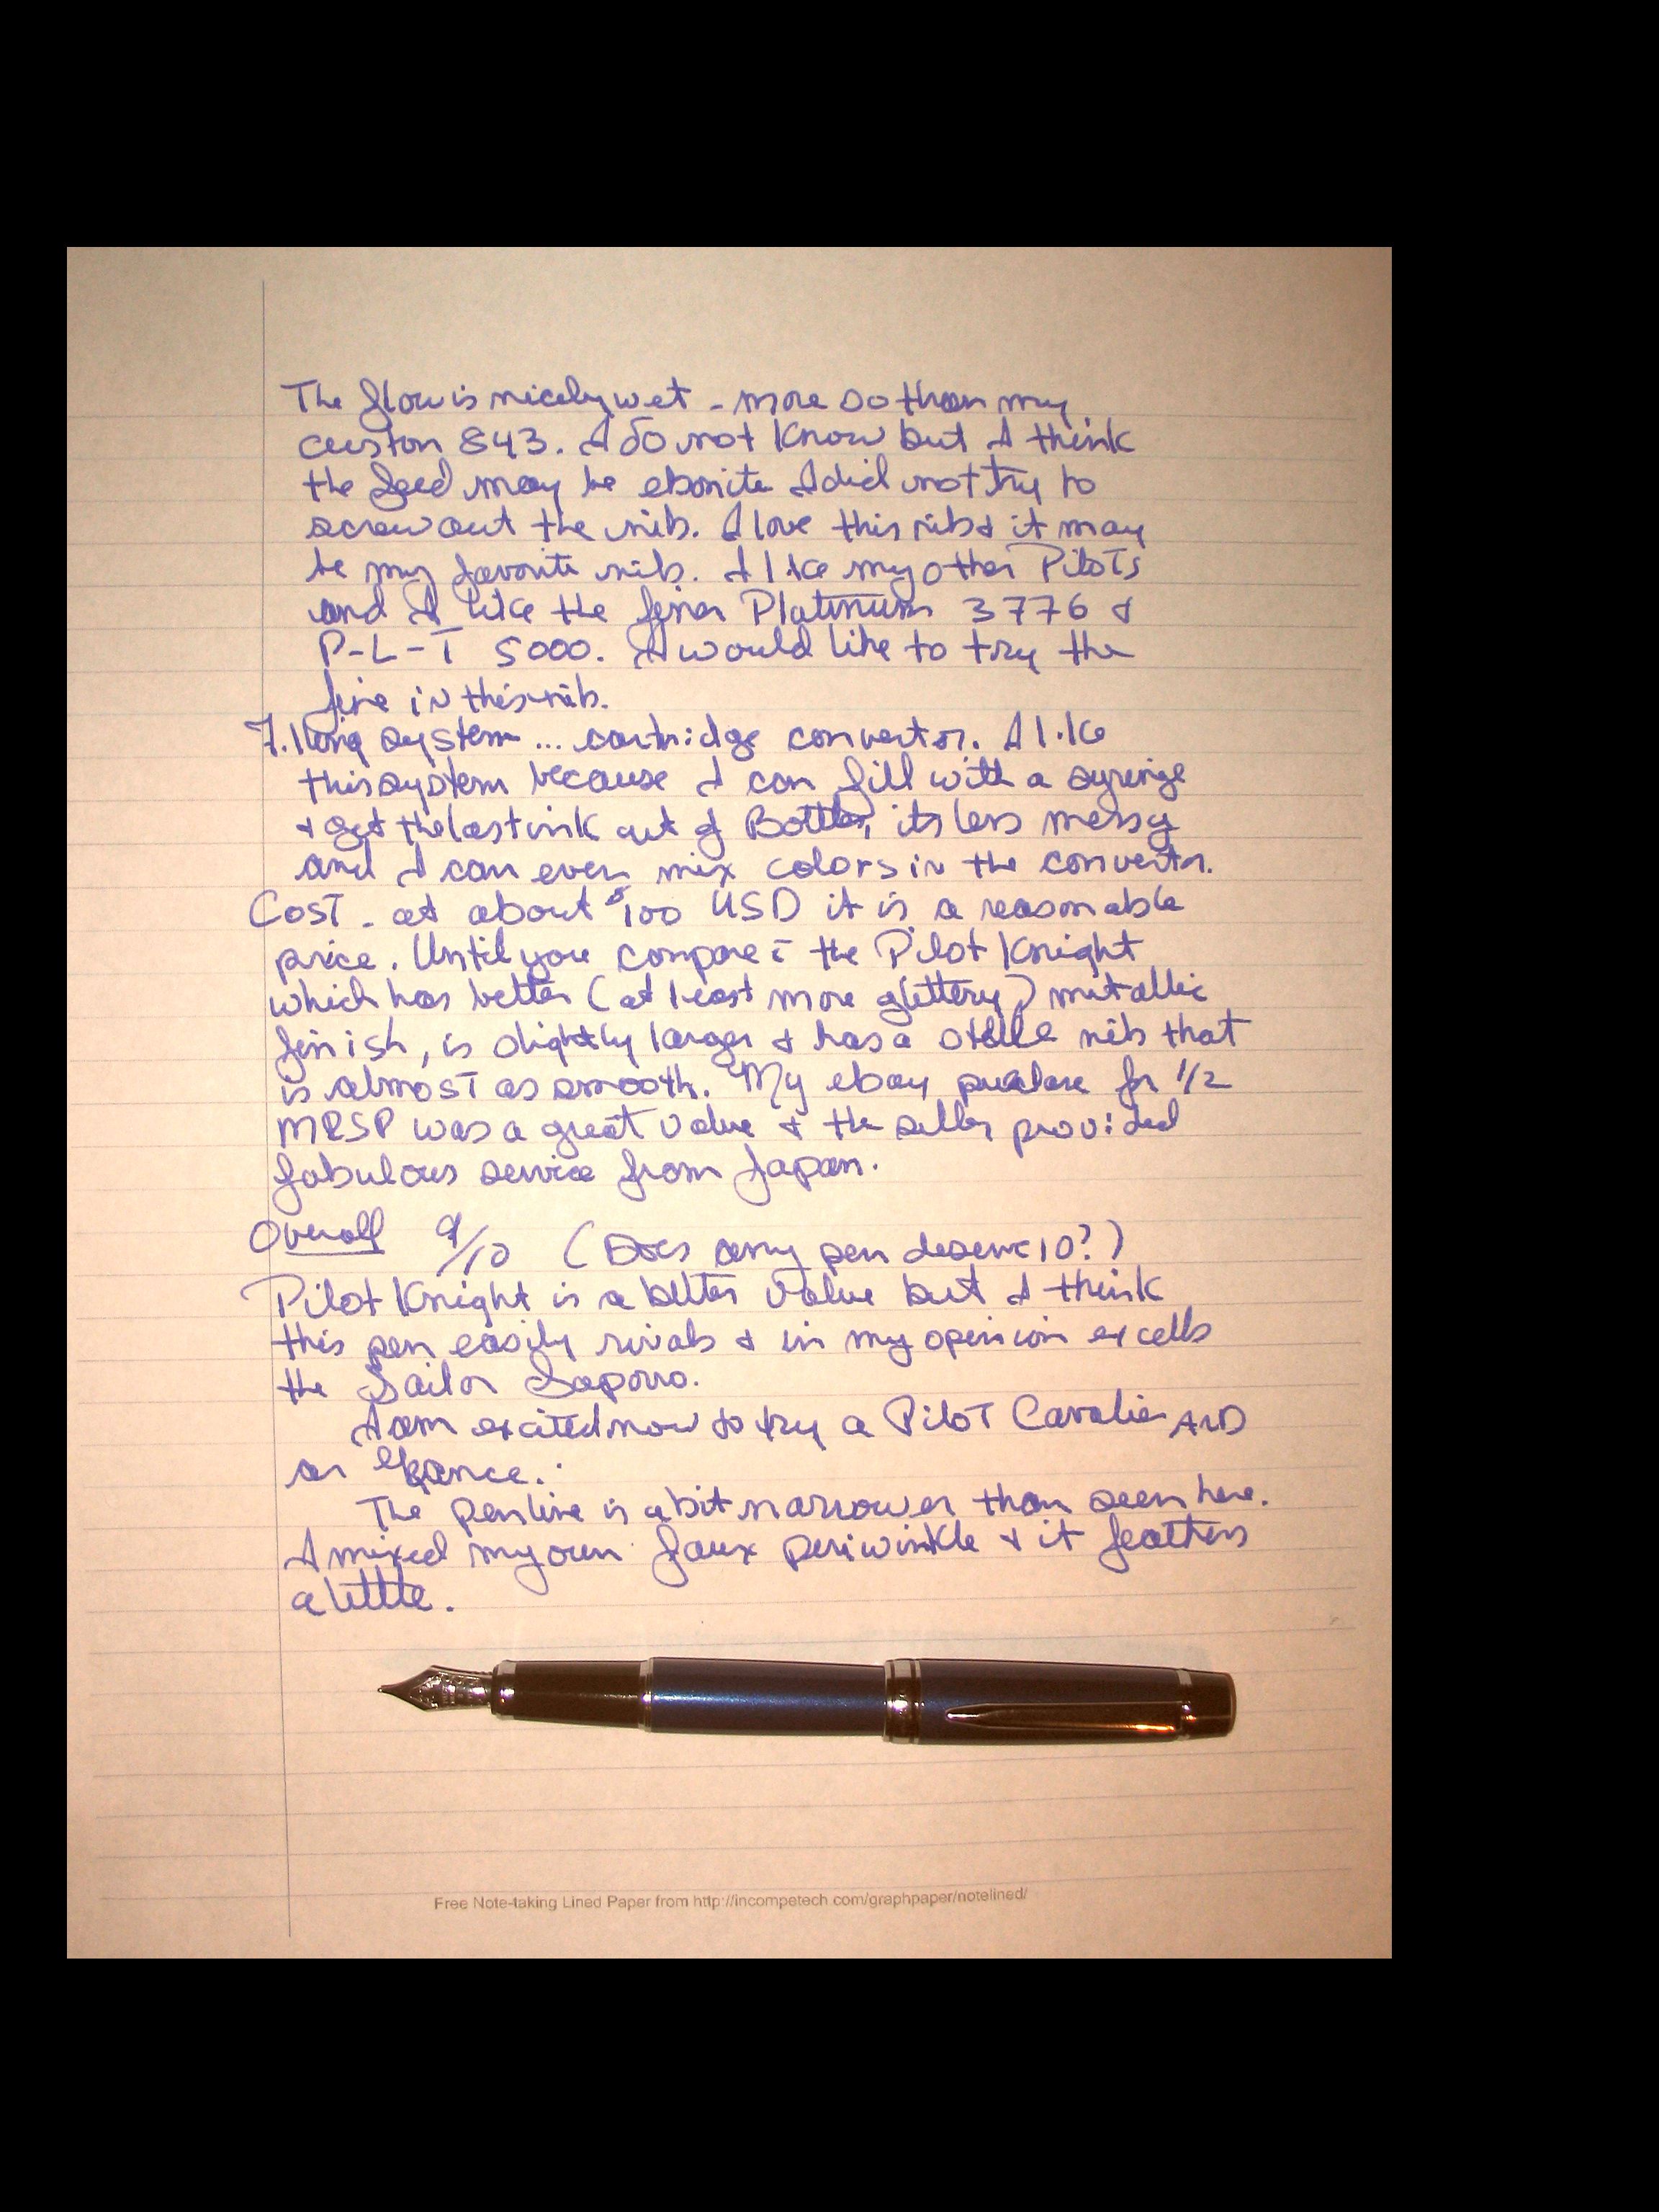 The flow is nicely wet - more so than my
custon 843. I do not know but I think
the feed may be ebonite I did not try to
screw out the nib. I love this nib & it may
be my favorite nib. I like my other Pilots
and I like the finer Platinum 3776 &
P-L-T 5000. I would like to try the
fine in this nib.
system ... cartridge convertor. I like
this system because I can fill with a syringe
& get the last ink out of Bottles, its less messy
and I can even mix colors in the convertr.
Cost - at about $100 USD it is a reasonable
price. Until you compare c̄ the Pilot Knight
which has better (at least more glittery) metallic
finish, is slightly larger & has a nib that
is almost as smooth. My ebay purchase for 1/2
MRSP was a great value & the seller provided
fabulous service from Japan.
Overall 9/10 (Does any pen deserve 10?)
Pilot Knight is a better value but I think
this pen easily rivals & in my opinion excells
the Sailor Saporro.
I am excited now to try a Pilot Cavalier AND
an
The pen line is a bit narrower than seen here.
I mixed my own faux periwinkle & it feathers
a little.
Free Note-taking Lined Paper from http://incompetech.com/graphpaper/notelined/